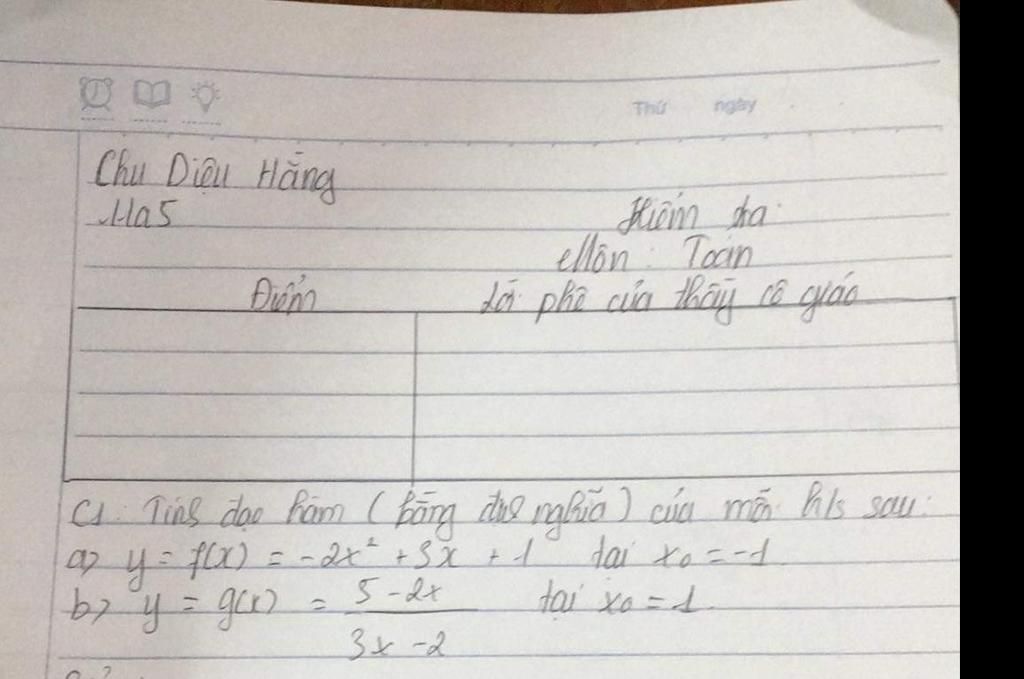 Thứ ngày
Chu Diệu Hằng
11a5
Kiểm tra
Môn : Toán
Điểm Lời phê của thầy cô giáo
C1: Tính đạo hàm (bằng định nghĩa) của mỗi h/s sau:
a) y = f(x) = -2x² + 3x + 1 tại x₀ = -1
b) y = g(x) = 5 - 2x / 3x - 2 tại x₀ = 1.